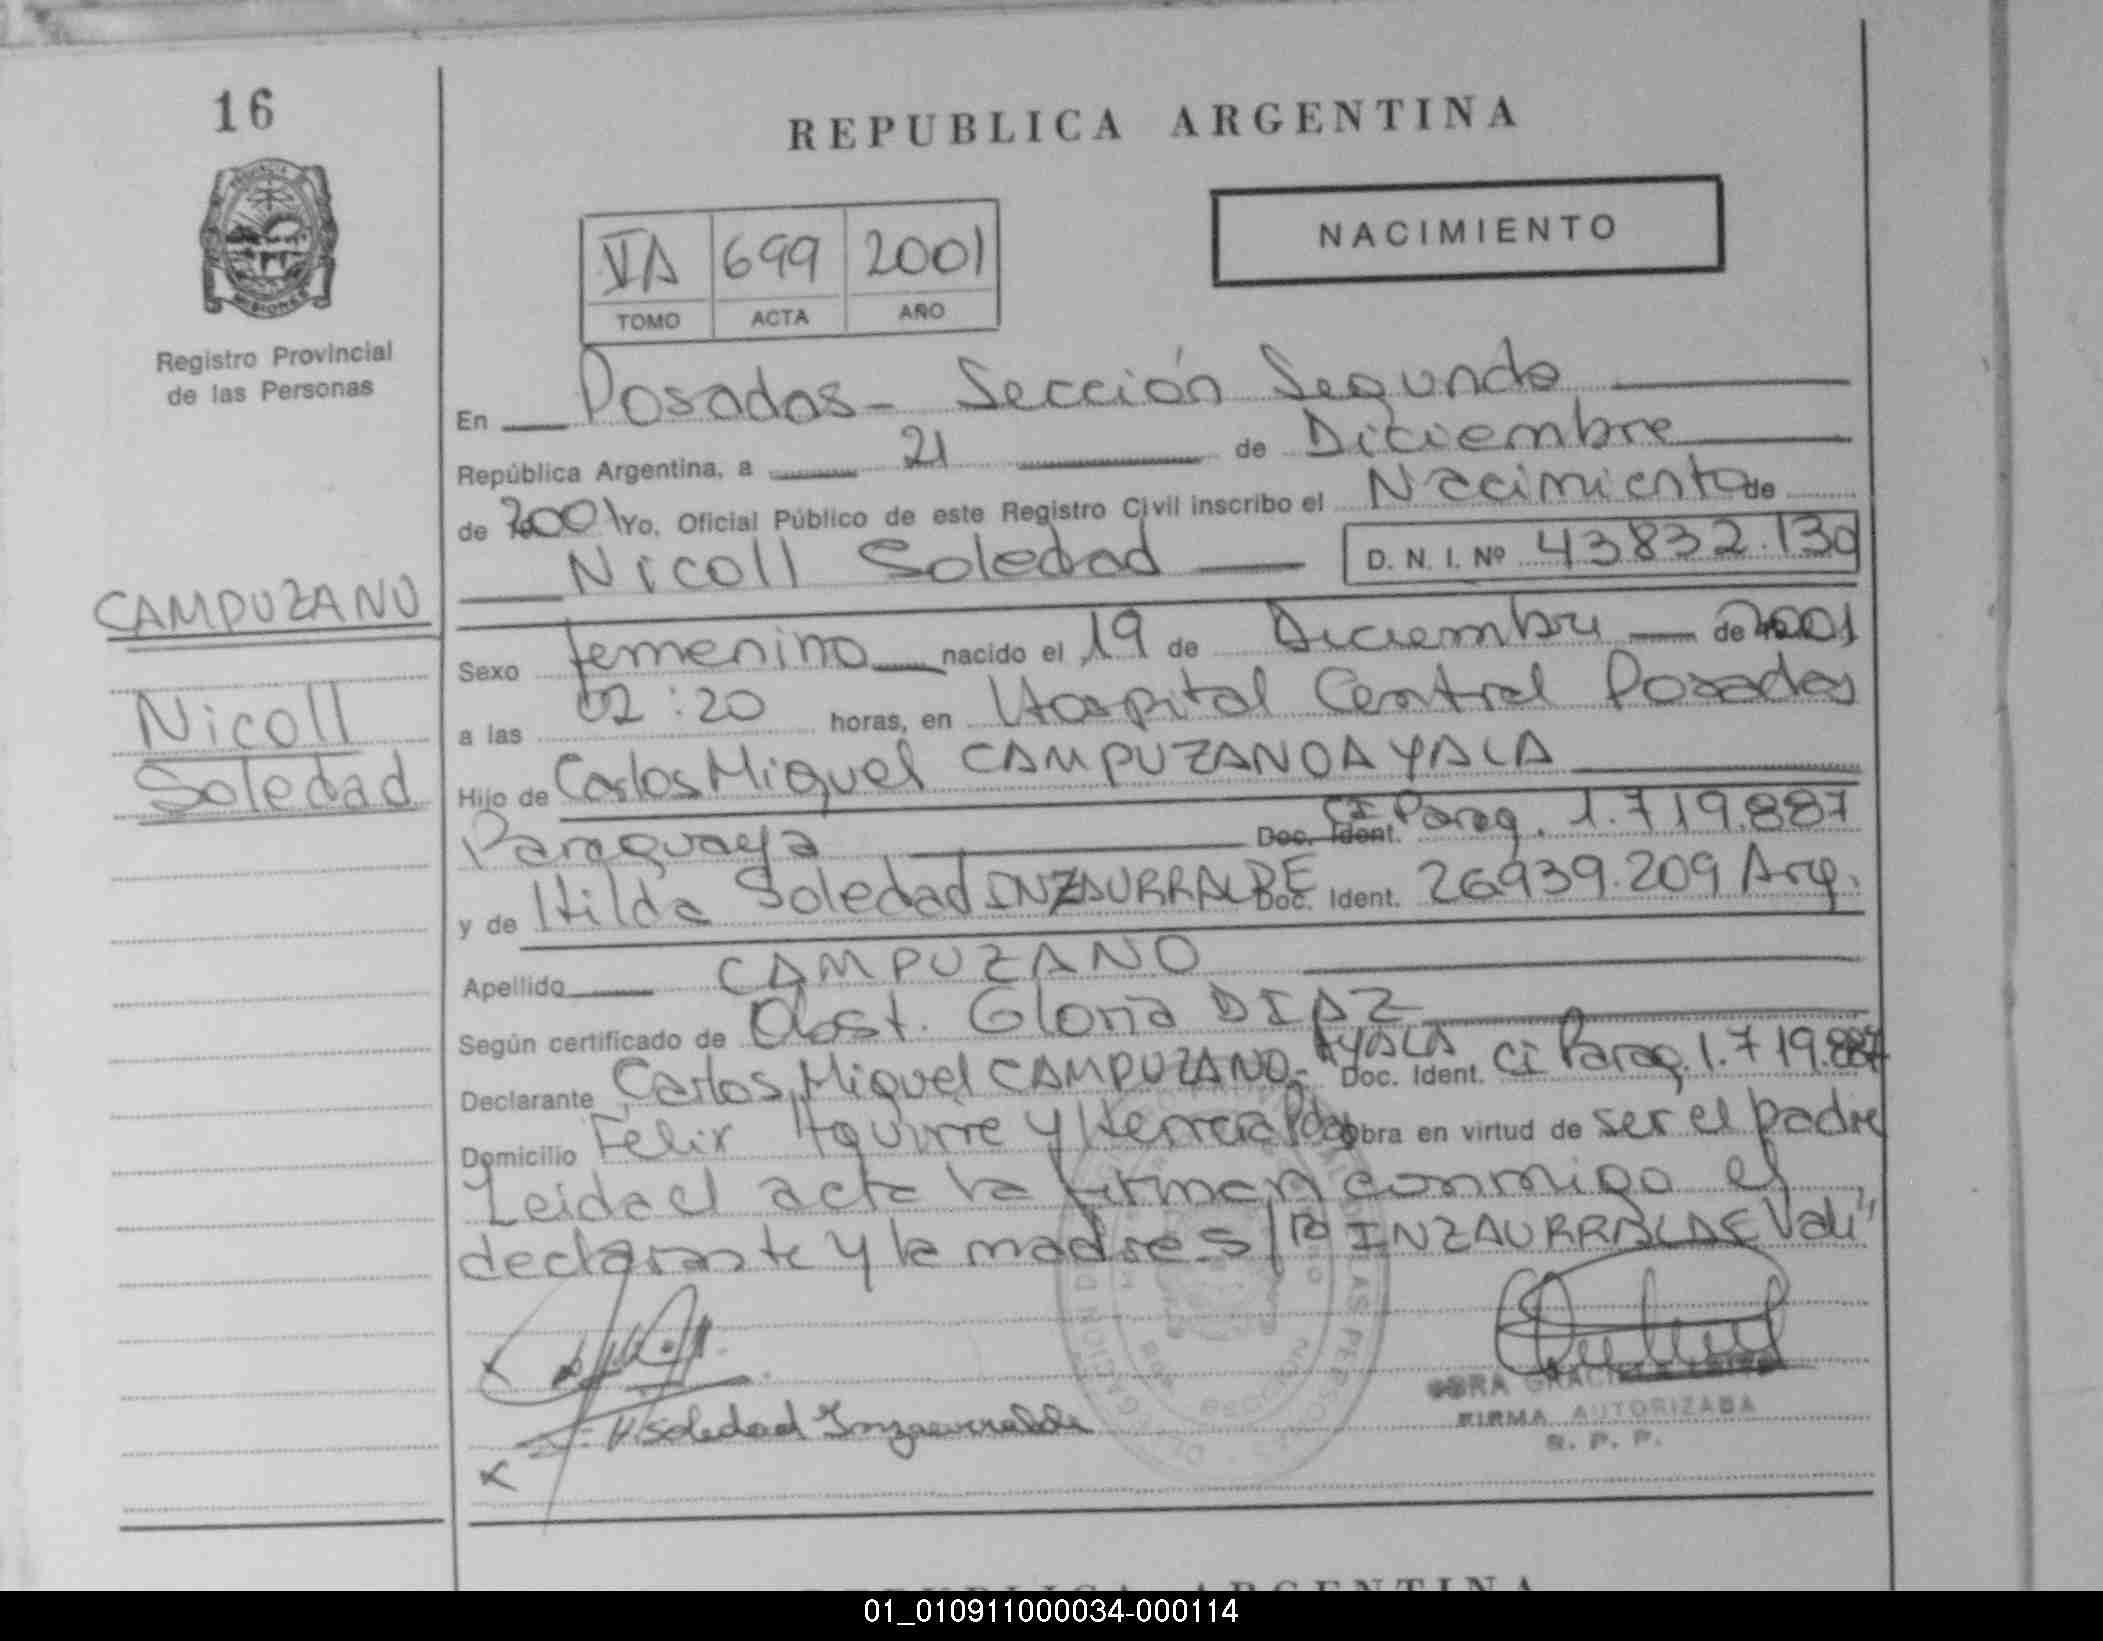 16
REPUBLICA ARGENTINA
NACIMIENTO
VA 699 2001
TOMO ACTA AÑO
Registro Provincial
de las Personas
MISIONES
En Posadas - Sección Segunda
República Argentina, a 21 de Diciembre
de 2001 Yo, Oficial Público de este Registro Civil inscribo el Nacimiento de
Nicoll Soledad D. N. I. Nº 43832.130
CAMPUZANO
Nicoll
Soledad
Sexo femenino nacido el 19 de Diciembre de 2001
a las 02:20 horas, en Hospital Central Posadas
Hijo de Carlos Miguel CAMPUZANO AYALA
Paraguaya Doc. Ident. CI Parag. 1.719.887
y de Hilda Soledad INZAURRALDE Doc. Ident. 26939.209 Arg.
Apellido CAMPUZANO
Según certificado de Obst. Gloria DIAZ
Declarante Carlos Miguel CAMPUZANO - AYALA Doc. Ident. CI Parag. 1.719.887
Domicilio Felix Aguirre y Herrera Pdas obra en virtud de ser el padre
Leida el acta la firman conmigo el
declarante y la madre s/r INZAURRALDE Vale"
H Soledad Inzaurralde
GRACIELA
FIRMA AUTORIZADA
R. P. P.
REPUBLICA ARGENTINA
01_010911000034-000114